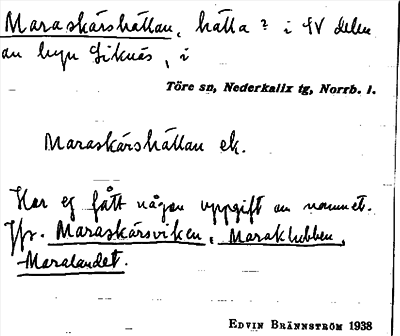 Maraskärshällan, hälla? i SV delen
av byn Siknäs, i
Töre sn, Nederkalix tg, Norrb. l.
Maraskärshällan ek.
Har ej fått någon uppgift om namnet.
Jfr. Maraskärsviken, Maraklubben,
Maralandet.
EDVIN BRÄNNSTRÖM 1938